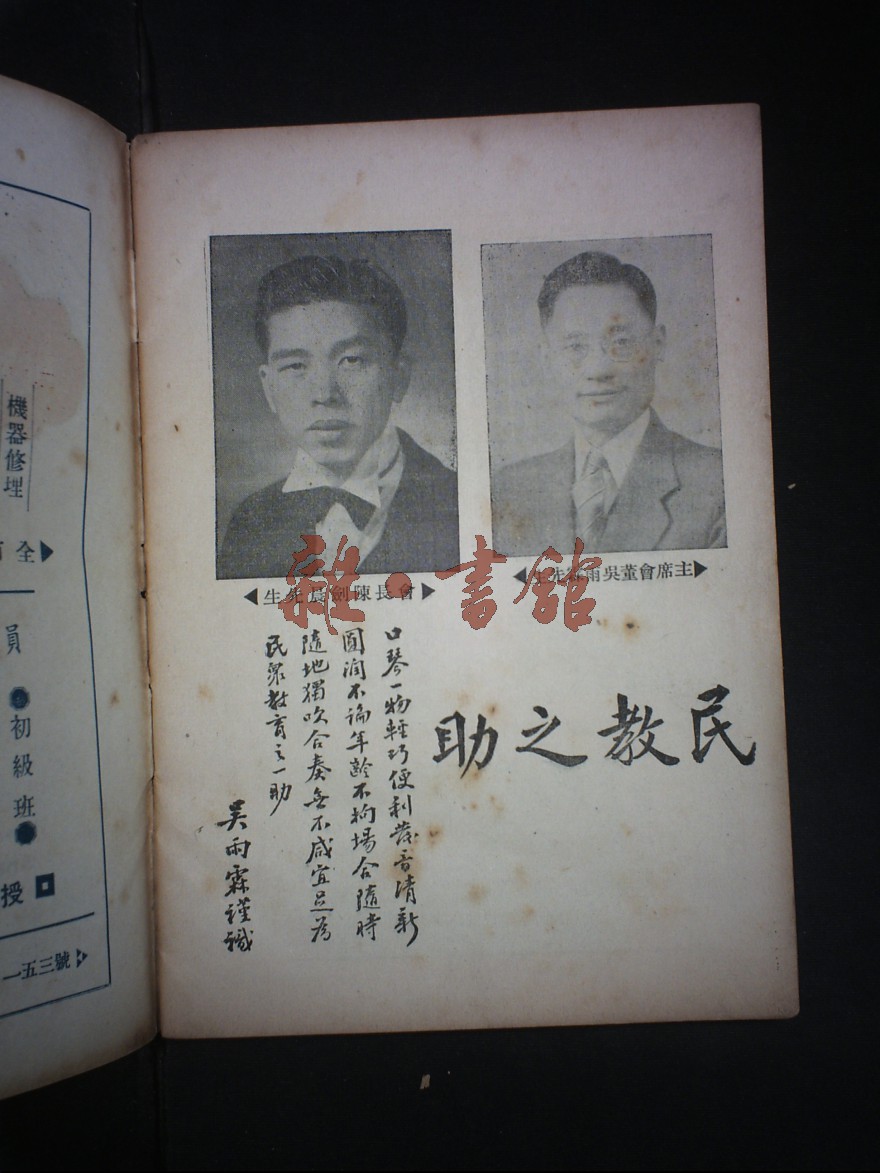 主席會董吳雨霖先生
會長陳劍晨先生
民教之助
口琴一物輕巧便利發音清新
圓潤不論年齡不拘場合隨時
隨地獨吹合奏無不咸宜足為
民眾教育之一助
吳雨霖謹識
機器修理
全
員
初級班
授
一五三號
雜·書館